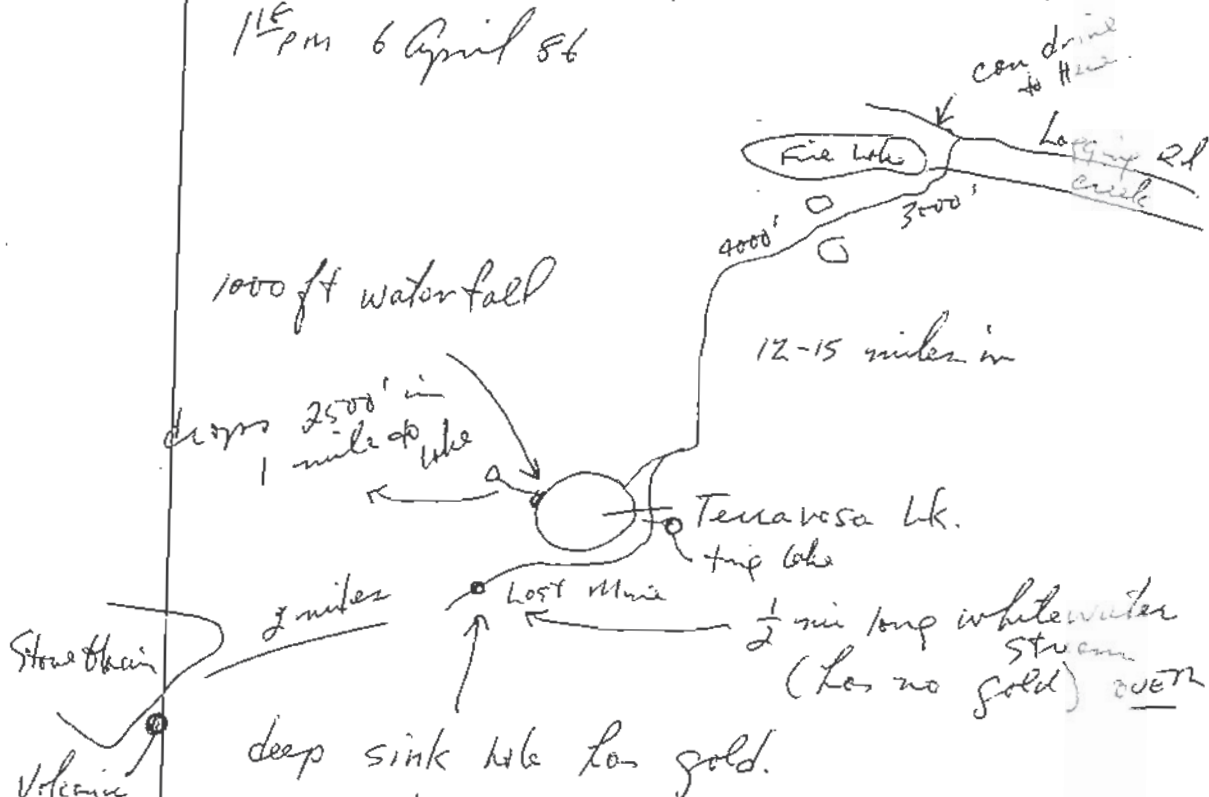 1 15 pm 6 April 86
can drive
to Here.
Logging Rd
creek
Fire Lake
3000'
4000'
1000 ft waterfall
12-15 miles in
drops 2500' in
1 mile to lake
Terravosa Lk.
tiny lake
Lost Mine
2 miles
1/2 mi long whitewater
stream
(has no gold) OVER
Stone Chain
Volcanic
deep sink hole has gold.